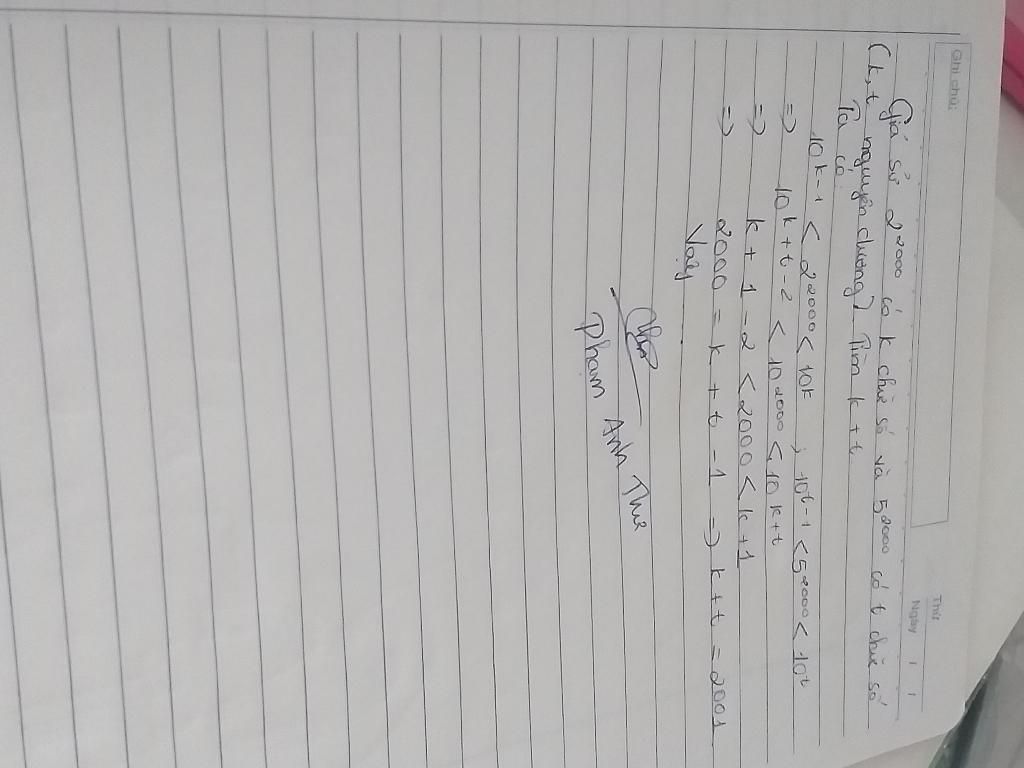 Ghi chú:
Thứ
Ngày / /
Giả sử 2²⁰⁰⁰ có k chữ số và 5²⁰⁰⁰ có t chữ số
(k, t nguyên dương). Tìm k + t.
Ta có:
10ᵏ⁻¹ < 2²⁰⁰⁰ < 10ᵏ ; 10ᵗ⁻¹ < 5²⁰⁰⁰ < 10ᵗ
=> 10ᵏ⁺ᵗ⁻² < 10²⁰⁰⁰ < 10ᵏ⁺ᵗ
=> k + 1 - 2 < 2000 < k + 1
=> 2000 = k + t - 1 => k + t = 2001
Vậy
Phạm Anh Thư